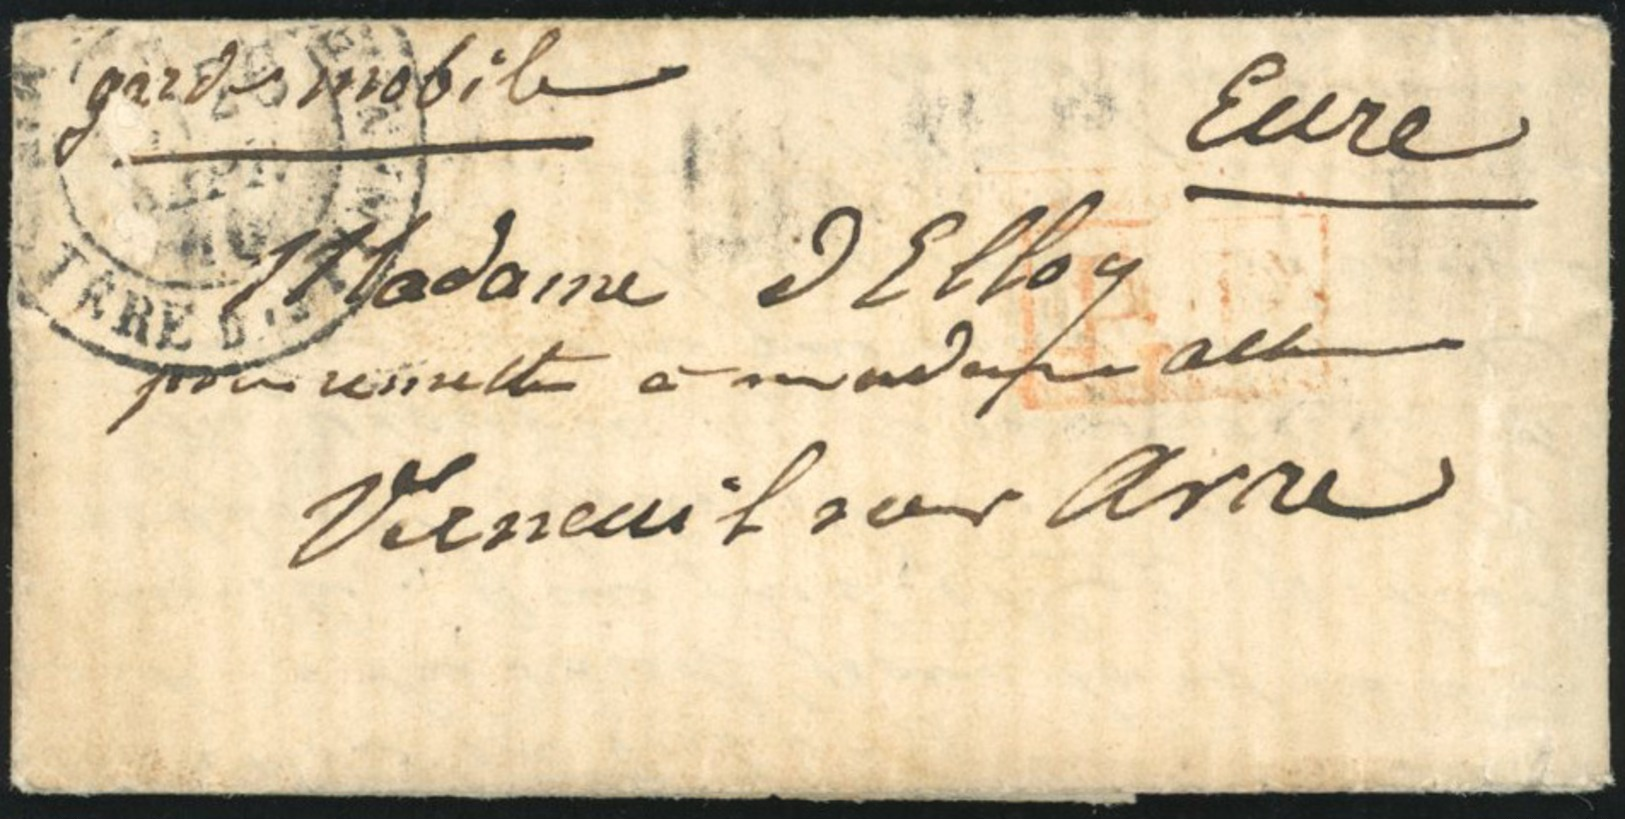 garde mobile
Eure
Madame d'Elloy
pour remettre à madame
Verneuil sur Avre
TÈRE D